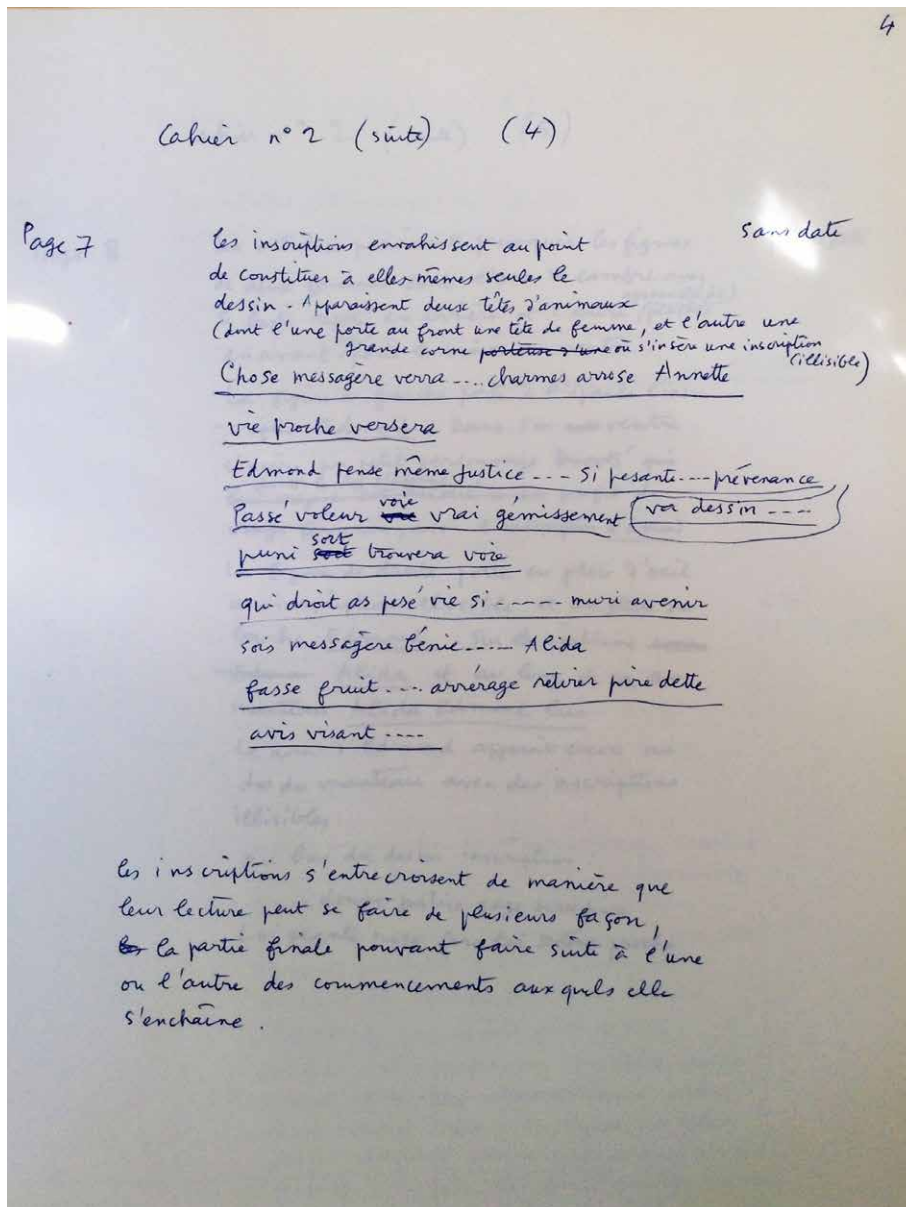 4
Cahier n° 2 (suite) (4)
Page 7
sans date
les inscriptions envahissent au point
de constituer à elles-mêmes seules le
dessin. Apparaissent deux têtes d'animaux
(dont l'une porte au front une tête de femme, et l'autre une
grande corne porteuse d'une où s'insère une inscription
(illisible)
Chose messagère verra .... charmes arrose Annette
vie proche versera
Edmond pense même justice --- si pesante ---- prévenance
Passé voleur vie voie vrai gémissement voir dessin ----
puni sort sort trouvera voie
qui droit as pesé vie si ----- muri avenir
sois messagère bénie ----- Alida
fasse fruit .... arrérage retirer pire dette
avis visant ----
les inscriptions s'entrecroisent de manière que
leur lecture peut se faire de plusieurs façon,
la partie finale pouvant faire suite à l'une
ou l'autre des commencements auxquels elle
s'enchaîne.